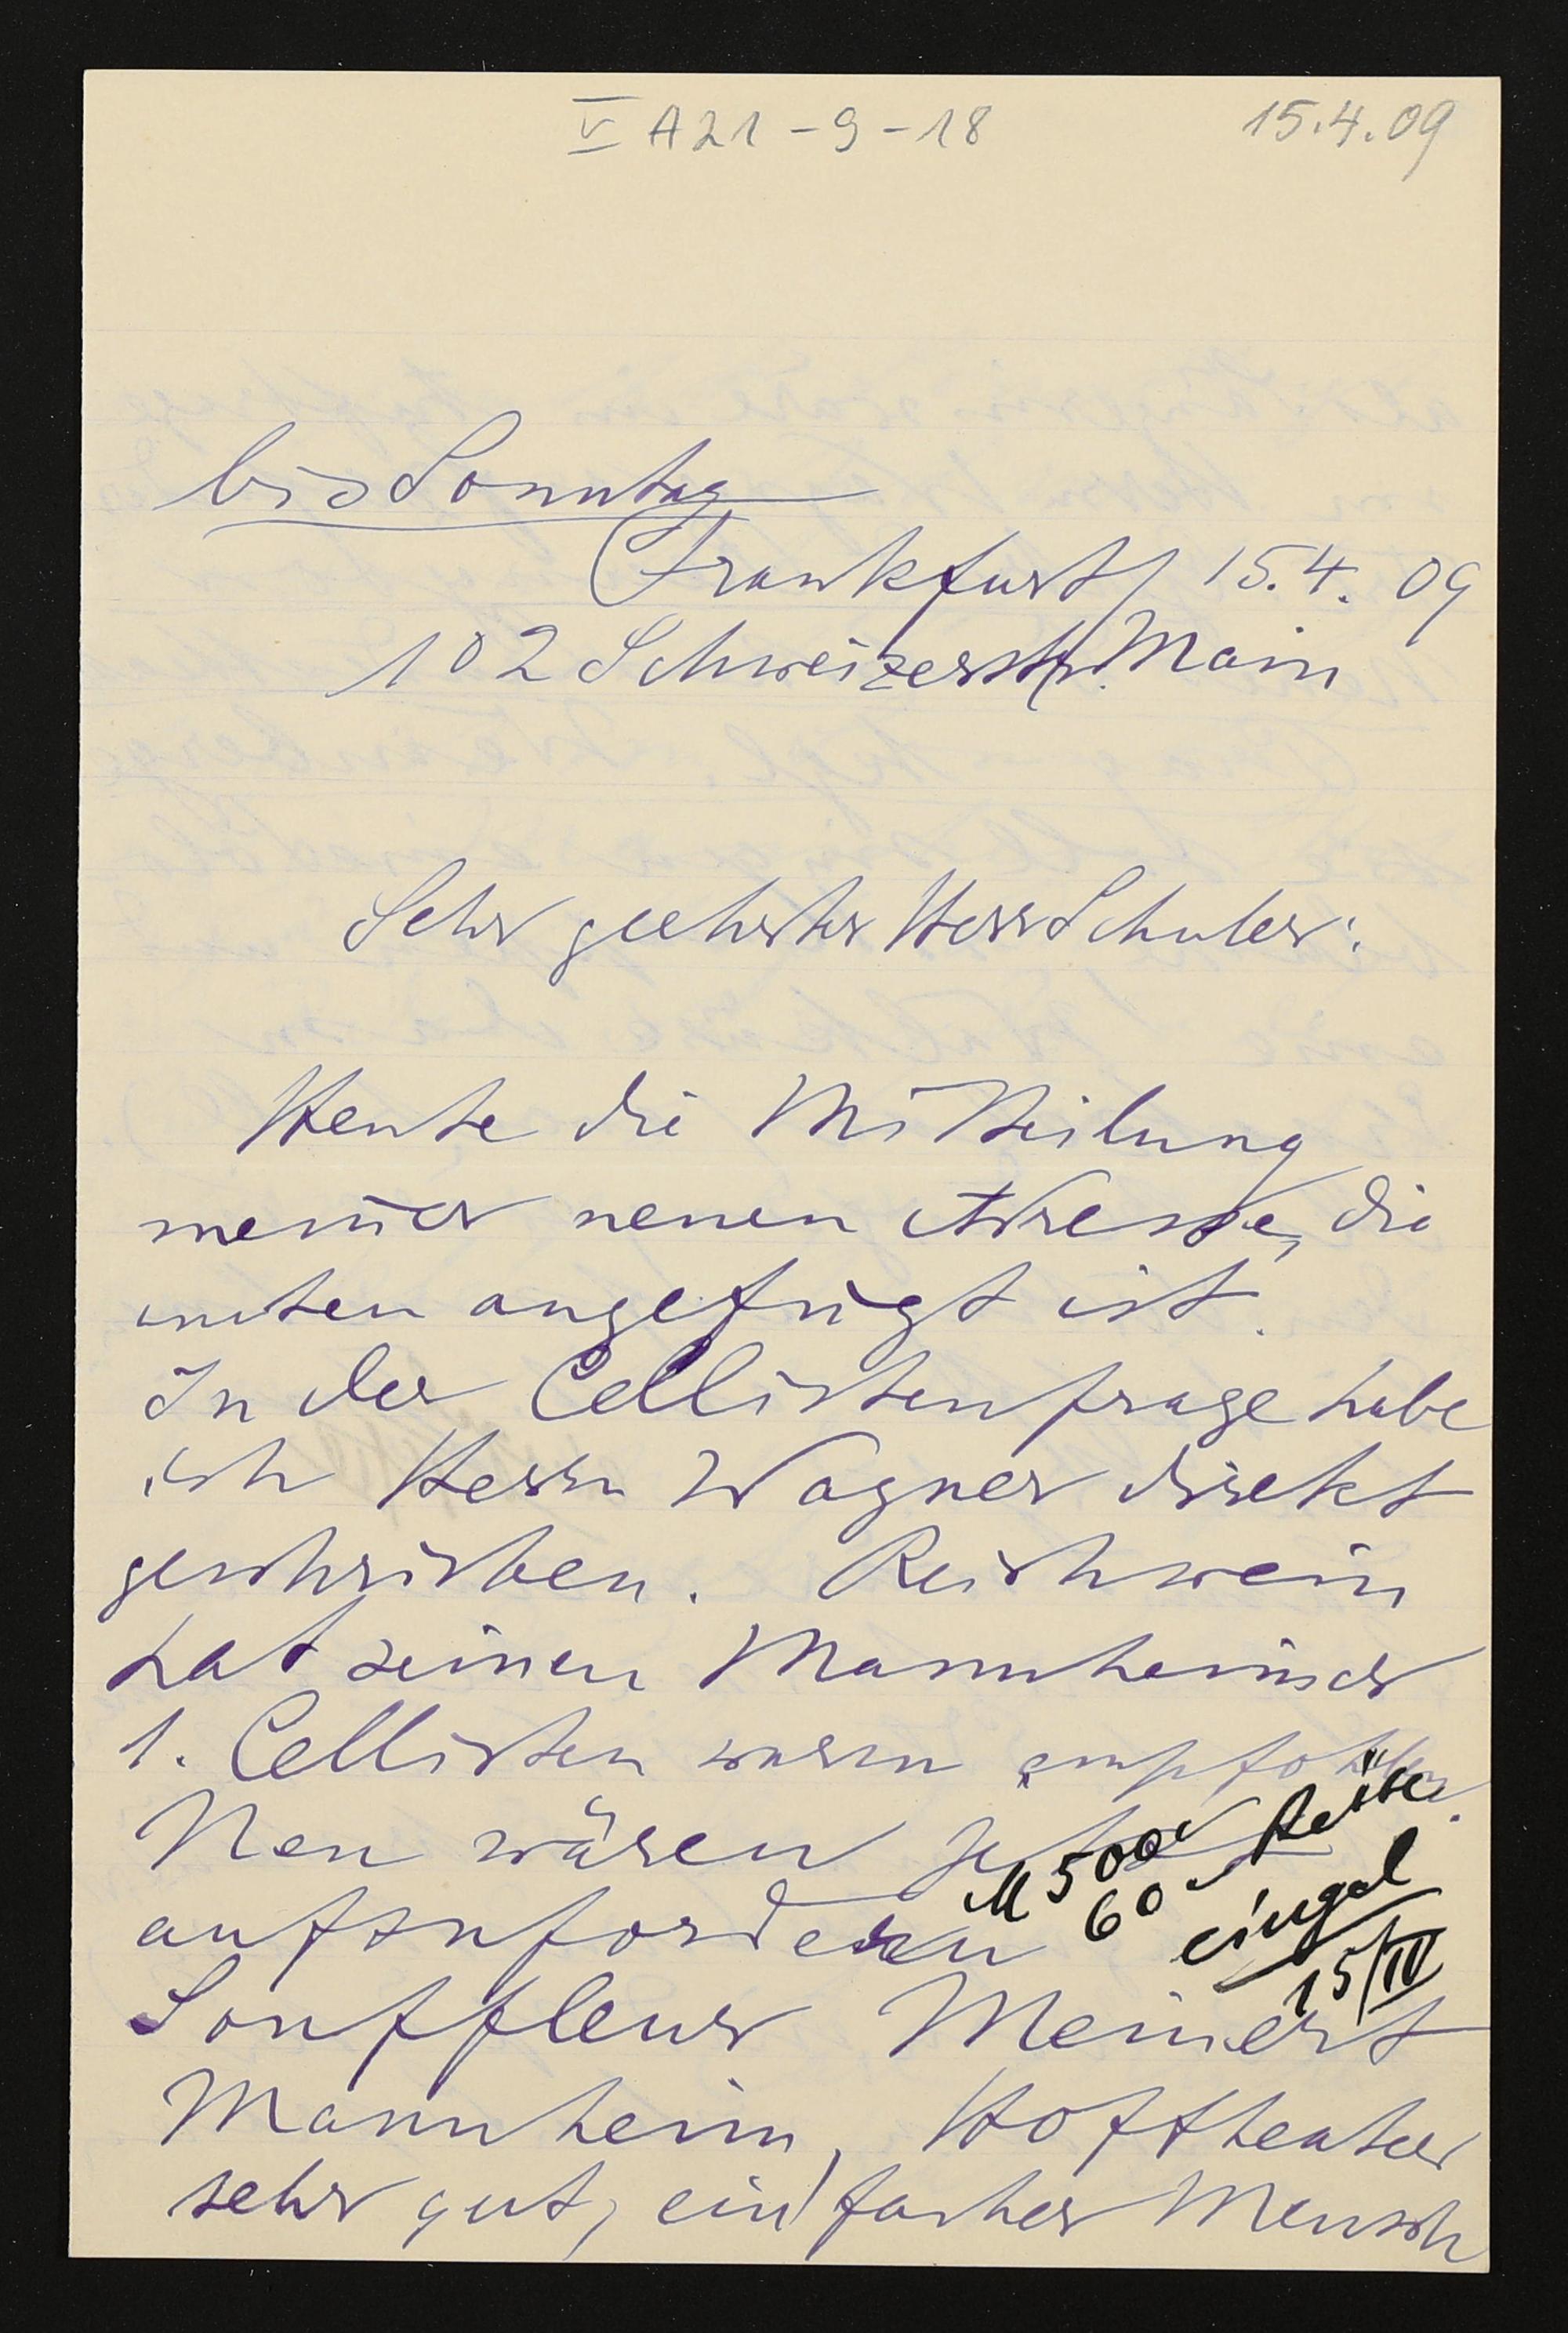 V A21-9-18
15.4.09
bis Sonntag
Frankfurt/ 15.4.09
102 Schweizerstr. Main
Sehr geehrter Herr Schuler:
Heute die Mitteilung
meiner neuen Adresse, die
unten angefügt ist.
In der Cellistenfrage habe
ich Herrn Wagner direkt
geschrieben. Reichwein
hat seinen Mannheimer
1. Cellisten warm empfohlen.
Nen wären
aufzufordern
M 500
60
eingel
15/IV
Souffleur Meinert
Mannheim, Hoftheater
sehr gut, einfacher Mensch